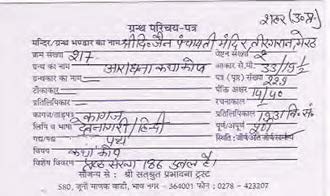 शहर (उ.प्र.)
ग्रन्थ परिचय-पत्र
मन्दिर/ग्रन्थ भण्डार का नाम श्री दि. जैन पंचायती मंदिर, तीरगरान, मेरठ
क्रम संख्या 217 वेष्टन संख्या २
ग्रन्थ का नाम आराधना कथाकोष आकार से.मी. 33/9½
ग्रन्थकार का नाम पत्र (पृ.) संख्या २२१
टीकाकार पंक्ति अक्षर 14/40
प्रतिलिपिकार रचनाकाल
कागज/ताड़पत्र कागज प्रतिलिपिकाल 1931 वि. सं.
लिपि व भाषा देवनागरी / हिन्दी पूर्ण/अपूर्ण पूर्ण
गद्य/पद्य पद्य स्थिति: जीर्ण/अति जीर्ण/सामान्य
विषय कथा कोष
विशेष विवरण पृष्ठ संख्या 186 डबल है।
सौजन्य से : श्री सतश्रुत प्रभावना ट्रस्ट
580, जूनी माणक वाडी, भाव नगर - 364001 फोन : 0278 - 423207